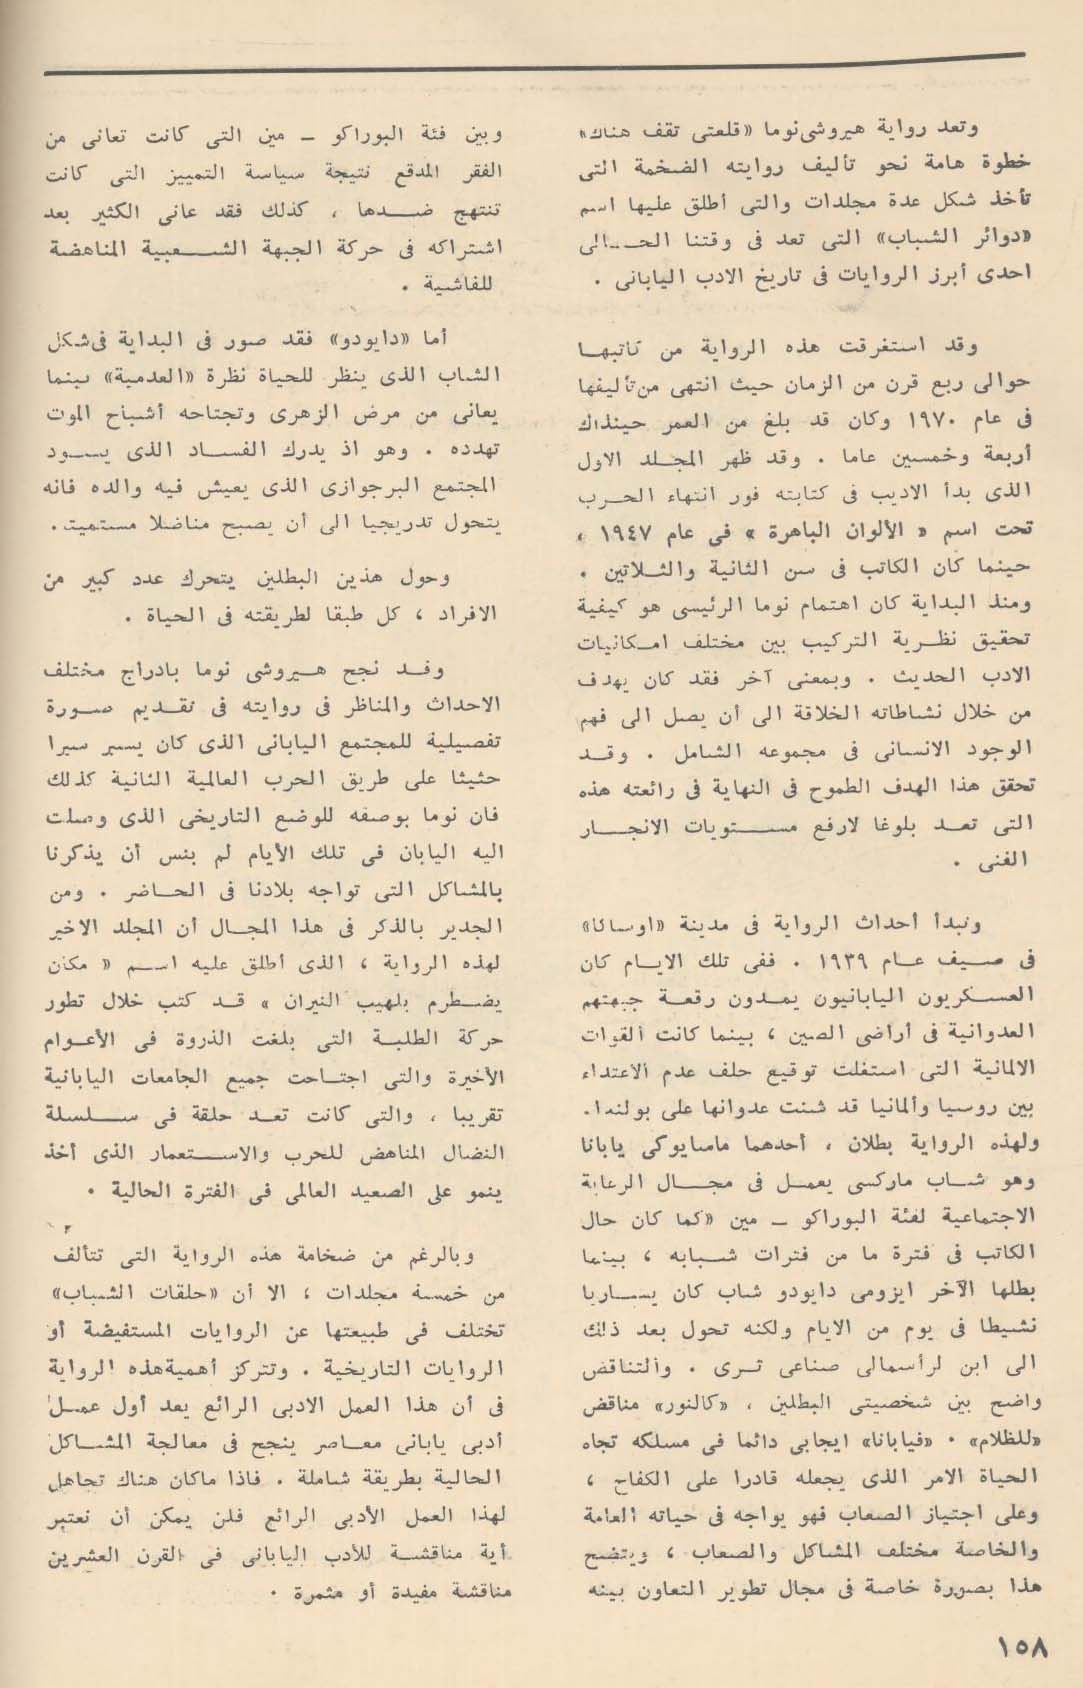 وتعد رواية هيروشى نوما «قلعتى تقف هناك»
خطوة هامة نحو تأليف روايته الضخمة التى
تأخذ شكل عدة مجلدات والتى أطلق عليها اسم
«دوائر الشباب» التى تعد فى وقتنا الحالى
احدى أبرز الروايات فى تاريخ الادب اليابانى .
وقد استغرقت هذه الرواية من كاتبها
حوالى ربع قرن من الزمان حيث انتهى من تأليفها
فى عام ١٩٧٠ وكان قد بلغ من العمر حينذاك
أربعة وخمسين عاما . وقد ظهر المجلد الاول
الذى بدأ الاديب فى كتابته فور انتهاء الحرب
تحت اسم « الألوان الباهرة » فى عام ١٩٤٧ ،
حينما كان الكاتب فى سن الثانية والثلاتين .
ومنذ البداية كان اهتمام نوما الرئيسى هو كيفية
تحقيق نظرية التركيب بين مختلف امكانيات
الادب الحديث . وبمعنى آخر فقد كان يهدف
من خلال نشاطاته الخلاقة الى أن يصل الى فهم
الوجود الانسانى فى مجموعه الشامل . وقد
تحقق هذا الهدف الطموح فى النهاية فى رائعته هذه
التى تعد بلوغا لارفع مستويات الانجار
الفنى .
وتبدأ أحداث الرواية فى مدينة «اوساكا»
فى صيف عام ١٩٣٩ . ففى تلك الايام كان
العسكريون اليابانيون يمدون رقعة جبهتهم
العدوانية فى أراضى الصين ، بينما كانت القوات
الالمانية التى استغلت توقيع حلف عدم الاعتداء
بين روسيا وألمانيا قد شنت عدوانها على بولندا.
ولهذه الرواية بطلان ، أحدهما ماسايوكى يابانا
وهو شاب ماركسى يعمل فى مجال الرعاية
الاجتماعية لفئة البوراكو - مين «كما كان حال
الكاتب فى فترة ما من فترات شبابه ، بينما
بطلها الآخر ايزومى دايودو شاب كان يساريا
نشيطا فى يوم من الايام ولكنه تحول بعد ذلك
الى ابن لرأسمالى صناعى ثرى . والتناقض
واضح بين شخصيتى البطلين ، «كالنور» مناقض
«للظلام» . «فيابانا» ايجابى دائما فى مسلكه تجاه
الحياة الامر الذى يجعله قادرا على الكفاح ،
وعلى اجتياز الصعاب فهو يواجه فى حياته العامة
والخاصة مختلف المشاكل والصعاب ، ويتضح
هذا بصورة خاصة فى مجال تطوير التعاون بينه
وبين فئة البوراكو - مين التى كانت تعانى من
الفقر المدقع نتيجة سياسة التمييز التى كانت
تنتهج ضدها ، كذلك فقد عانى الكثير بعد
اشتراكه فى حركة الجبهة الشعبية المناهضة
للفاشية .
أما «دايودو» فقد صور فى البداية فى شكل
الشاب الذى ينظر للحياة نظرة «العدمية» بينما
يعانى من مرض الزهرى وتجتاحه أشباح الموت
تهدده . وهو اذ يدرك الفساد الذى يسود
المجتمع البرجوازى الذى يعيش فيه والده فانه
يتحول تدريجيا الى أن يصبح مناضلا مستميت.
وحول هذين البطلين يتحرك عدد كبير من
الافراد ، كل طبقا لطريقته فى الحياة .
وقد نجح هيروشى نوما بادراج مختلف
الاحداث والمناظر فى روايته فى تقديم صورة
تفصيلية للمجتمع اليابانى الذى كان يسير سيرا
حثيثا على طريق الحرب العالمية الثانية كذلك
فان نوما بوصفه للوضع التاريخى الذى وصلت
اليه اليابان فى تلك الأيام لم ينس أن يذكرنا
بالمشاكل التى تواجه بلادنا فى الحاضر . ومن
الجدير بالذكر فى هذا المجال أن المجلد الاخير
لهذه الرواية ، الذى أطلق عليه اسم « مكان
يضطرم بلهيب النيران » قد كتب خلال تطور
حركة الطلبة التى بلغت الذروة فى الأعوام
الأخيرة والتى اجتاحت جميع الجامعات اليابانية
تقريبا ، والتى كانت تعد حلقة فى سلسلة
النضال المناهض للحرب والاستعمار الذى أخذ
ينمو على الصعيد العالمى فى الفترة الحالية .
وبالرغم من ضخامة هذه الرواية التى تتألف
من خمسة مجلدات ، الا أن «حلقات الشباب»
تختلف فى طبيعتها عن الروايات المستفيضة أو
الروايات التاريخية . وتتركز أهمية هذه الرواية
فى أن هذا العمل الادبى الرائع يعد أول عمل
أدبى يابانى معاصر ينجح فى معالجة المشاكل
الحالية بطريقة شاملة . فاذا ماكان هناك تجاهل
لهذا العمل الأدبى الرائع فلن يمكن أن نعتبر
أية مناقشة للأدب اليابانى فى القرن العشرين
مناقشة مفيدة أو مثمرة .
١٥٨